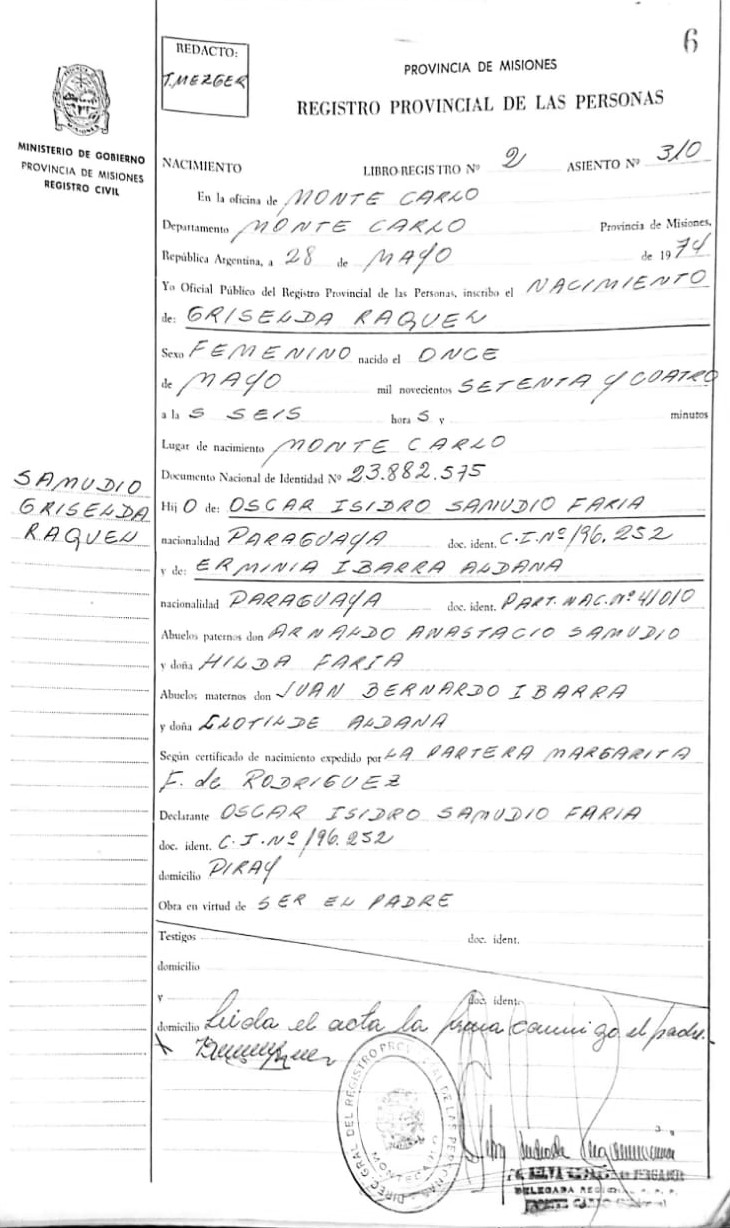 6
REDACTO:
T. MEZGER
PROVINCIA DE MISIONES
REGISTRO PROVINCIAL DE LAS PERSONAS
MINISTERIO DE GOBIERNO
PROVINCIA DE MISIONES
REGISTRO CIVIL
NACIMIENTO LIBRO REGISTRO Nº 2 ASIENTO Nº 310
En la oficina de MONTE CARLO
Departamento MONTE CARLO Provincia de Misiones,
República Argentina, a 28 de MAYO de 1974
Yo Oficial Público del Registro Provincial de las Personas, inscribo el NACIMIENTO
de: GRISELDA RAQUEL
Sexo FEMENINO nacido el ONCE
de MAYO mil novecientos SETENTA Y CUATRO
a las SEIS horas y minutos
Lugar de nacimiento MONTE CARLO
Documento Nacional de Identidad Nº 23.882.575
SAMUDIO
GRISELDA
RAQUEL
Hij O de: OSCAR ISIDRO SAMUDIO FARIA
nacionalidad PARAGUAYA doc. ident. C.I.Nº 196.252
y de: ERMINIA IBARRA ALDANA
nacionalidad PARAGUAYA doc. ident. PART. NAC. Nº 41010
Abuelos paternos don ARNALDO ANASTACIO SAMUDIO
y doña HILDA FARIA
Abuelos maternos don JUAN BERNARDO IBARRA
y doña CLOTILDE ALDANA
Según certificado de nacimiento expedido por LA PARTERA MARGARITA
F. de RODRIGUEZ
Declarante OSCAR ISIDRO SAMUDIO FARIA
doc. ident. C.I.Nº 196.252
domicilio PIRAY
Obra en virtud de SER EL PADRE
Testigos doc. ident.
domicilio
y doc. ident.
domicilio Leida el acta la firma conmigo el padre.-
DIREC. GRAL. DEL REGISTRO PROV. DE LAS PERSONAS
MONTECARLO
DELEGADA
MONTE CARLO